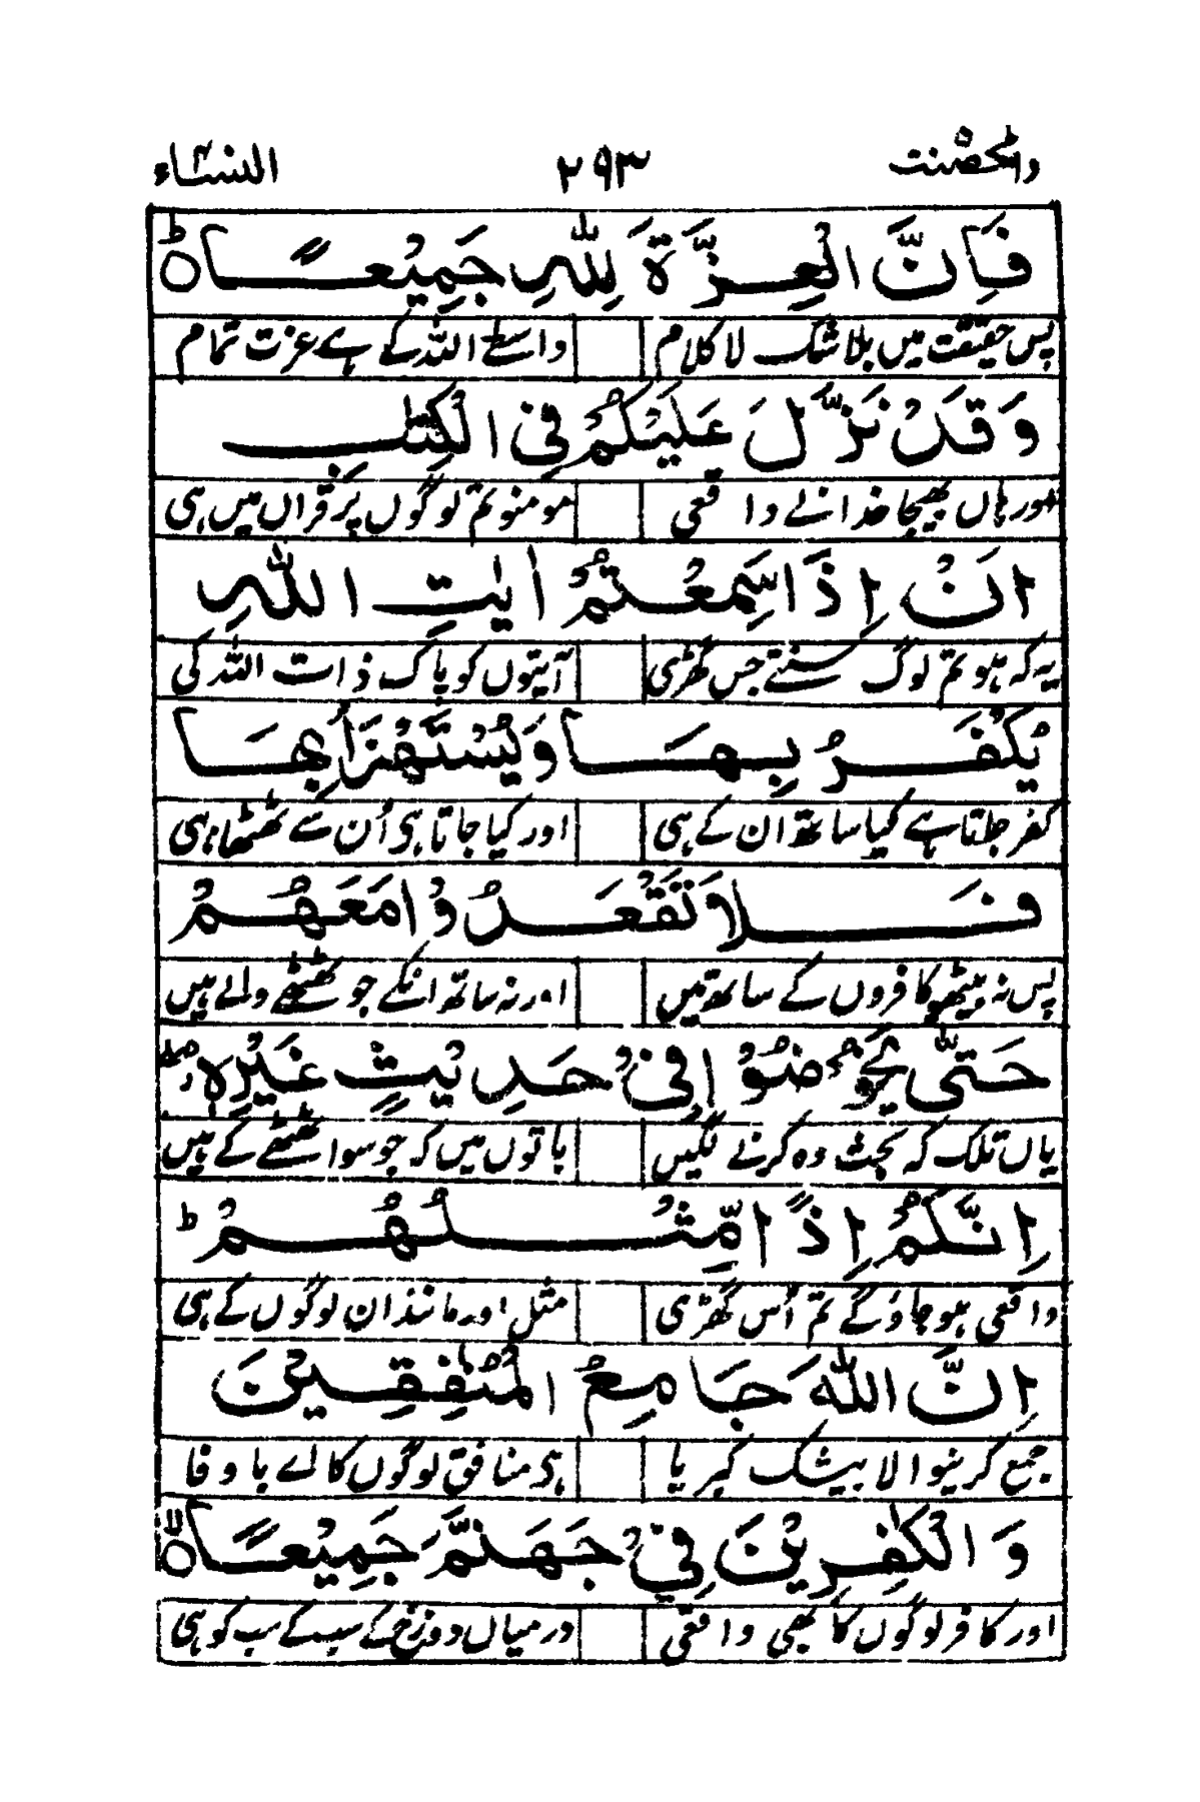 والمحصنت ۲۹۳ النساء
فَاِنَّ الْعِزَّةَ لِلّٰهِ جَمِيْعًا ؕ
پس حقیقت میں بلا شک لا کلام واسطے اللہ کے ہے عزت تمام
وَقَدْ نَزَّلَ عَلَيْكُمْ فِى الْكِتٰبِ
اور ہاں بھیجا خدا نے واقعی مومنو تم لوگوں پر قرآں میں ہی
اَنْ اِذَا سَمِعْتُمْ اٰيٰتِ اللّٰهِ
یہ کہ ہو تم لوگ سنتے جس گھڑی آیتوں کو پاک ذات اللہ کی
يُكْفَرُ بِهَا وَيُسْتَهْزَاُ بِهَا
کفر جلتا ہے کیا ساتھ ان کے ہی اور کیا جاتا ہی اُن سے ٹھٹھا ہی
فَلَا تَقْعُدُوْا مَعَهُمْ
پس نہ بیٹھو کافروں کے ساتھ میں اور نہ ساتھ انکے جو ٹھٹھے والے ہیں
حَتّٰى يَخُوْضُوْا فِىْ حَدِيْثٍ غَيْرِهٖۤ
یاں تلک کہ بحث وہ کرنے لگیں باتوں میں کہ جو سوا ٹھٹھے کے ہیں
اِنَّكُمْ اِذًا مِّثْلُهُمْ ؕ
واقعی ہو جاؤگے تم اُس گھڑی مثل اور مانند ان لوگوں کے ہی
اِنَّ اللّٰهَ جَامِعُ الْمُنٰفِقِيْنَ
جمع کرنیوالا بیشک کبریا ہی منافق لوگوں کا اے با وفا
وَالْكٰفِرِيْنَ فِىْ جَهَنَّمَ جَمِيْعًا ۙ
اور کافر لوگوں کا بھی واقعی درمیاں دوزخ کے سب کے سب کو ہی